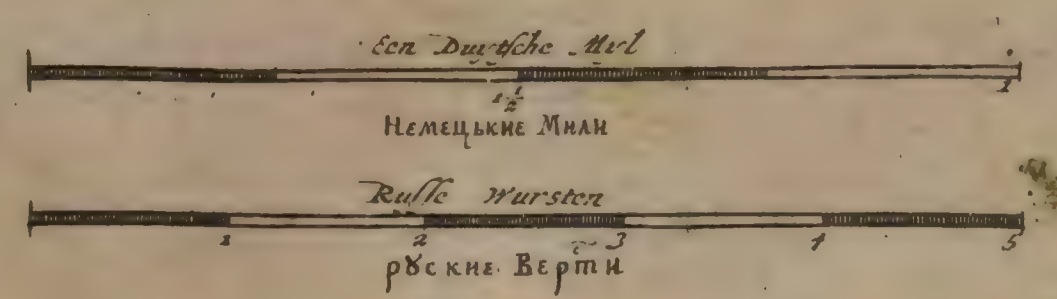 Een Duytsche Myl
1/2 1
Немецькие Мили
Russe Wursten
1 2 3 4 5
рꙋские Верти